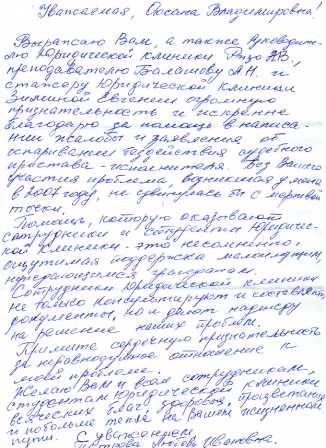 Уважаемая, Оксана Владимировна!
Выражаю Вам, а также руководите-
лю Юридической клиники
преподавателю Балашову А.Н. и
стажеру Юридической клиники
Зиминой Евгении огромную
признательность и искренне
благодарю за помощь в написа-
нии жалобы и заявления об
оспаривании бездействия судебного
пристава-исполнителя. Без Вашего
участия проблема, возникшая у меня
в 2007 году, не сдвинулась бы с мертвой
точки.
Помощь, которую оказывают
сотрудники и студенты Юридичес-
кой клиники - это несомненно,
ощутимая поддержка малоимущим,
нуждающимся гражданам.
Сотрудники Юридической клиники
не только консультируют и составляют
документы, но и дают надежду
на решение наших проблем.
Примите сердечную признательность
за неравнодушное отношение к
моей проблеме.
Желаю Вам и всем сотрудникам,
студентам Юридической клиники
всяческих благ, здоровья, процветания
и побольше тепла на Вашем жизненном
пути.
С уважением,
Ивановна.